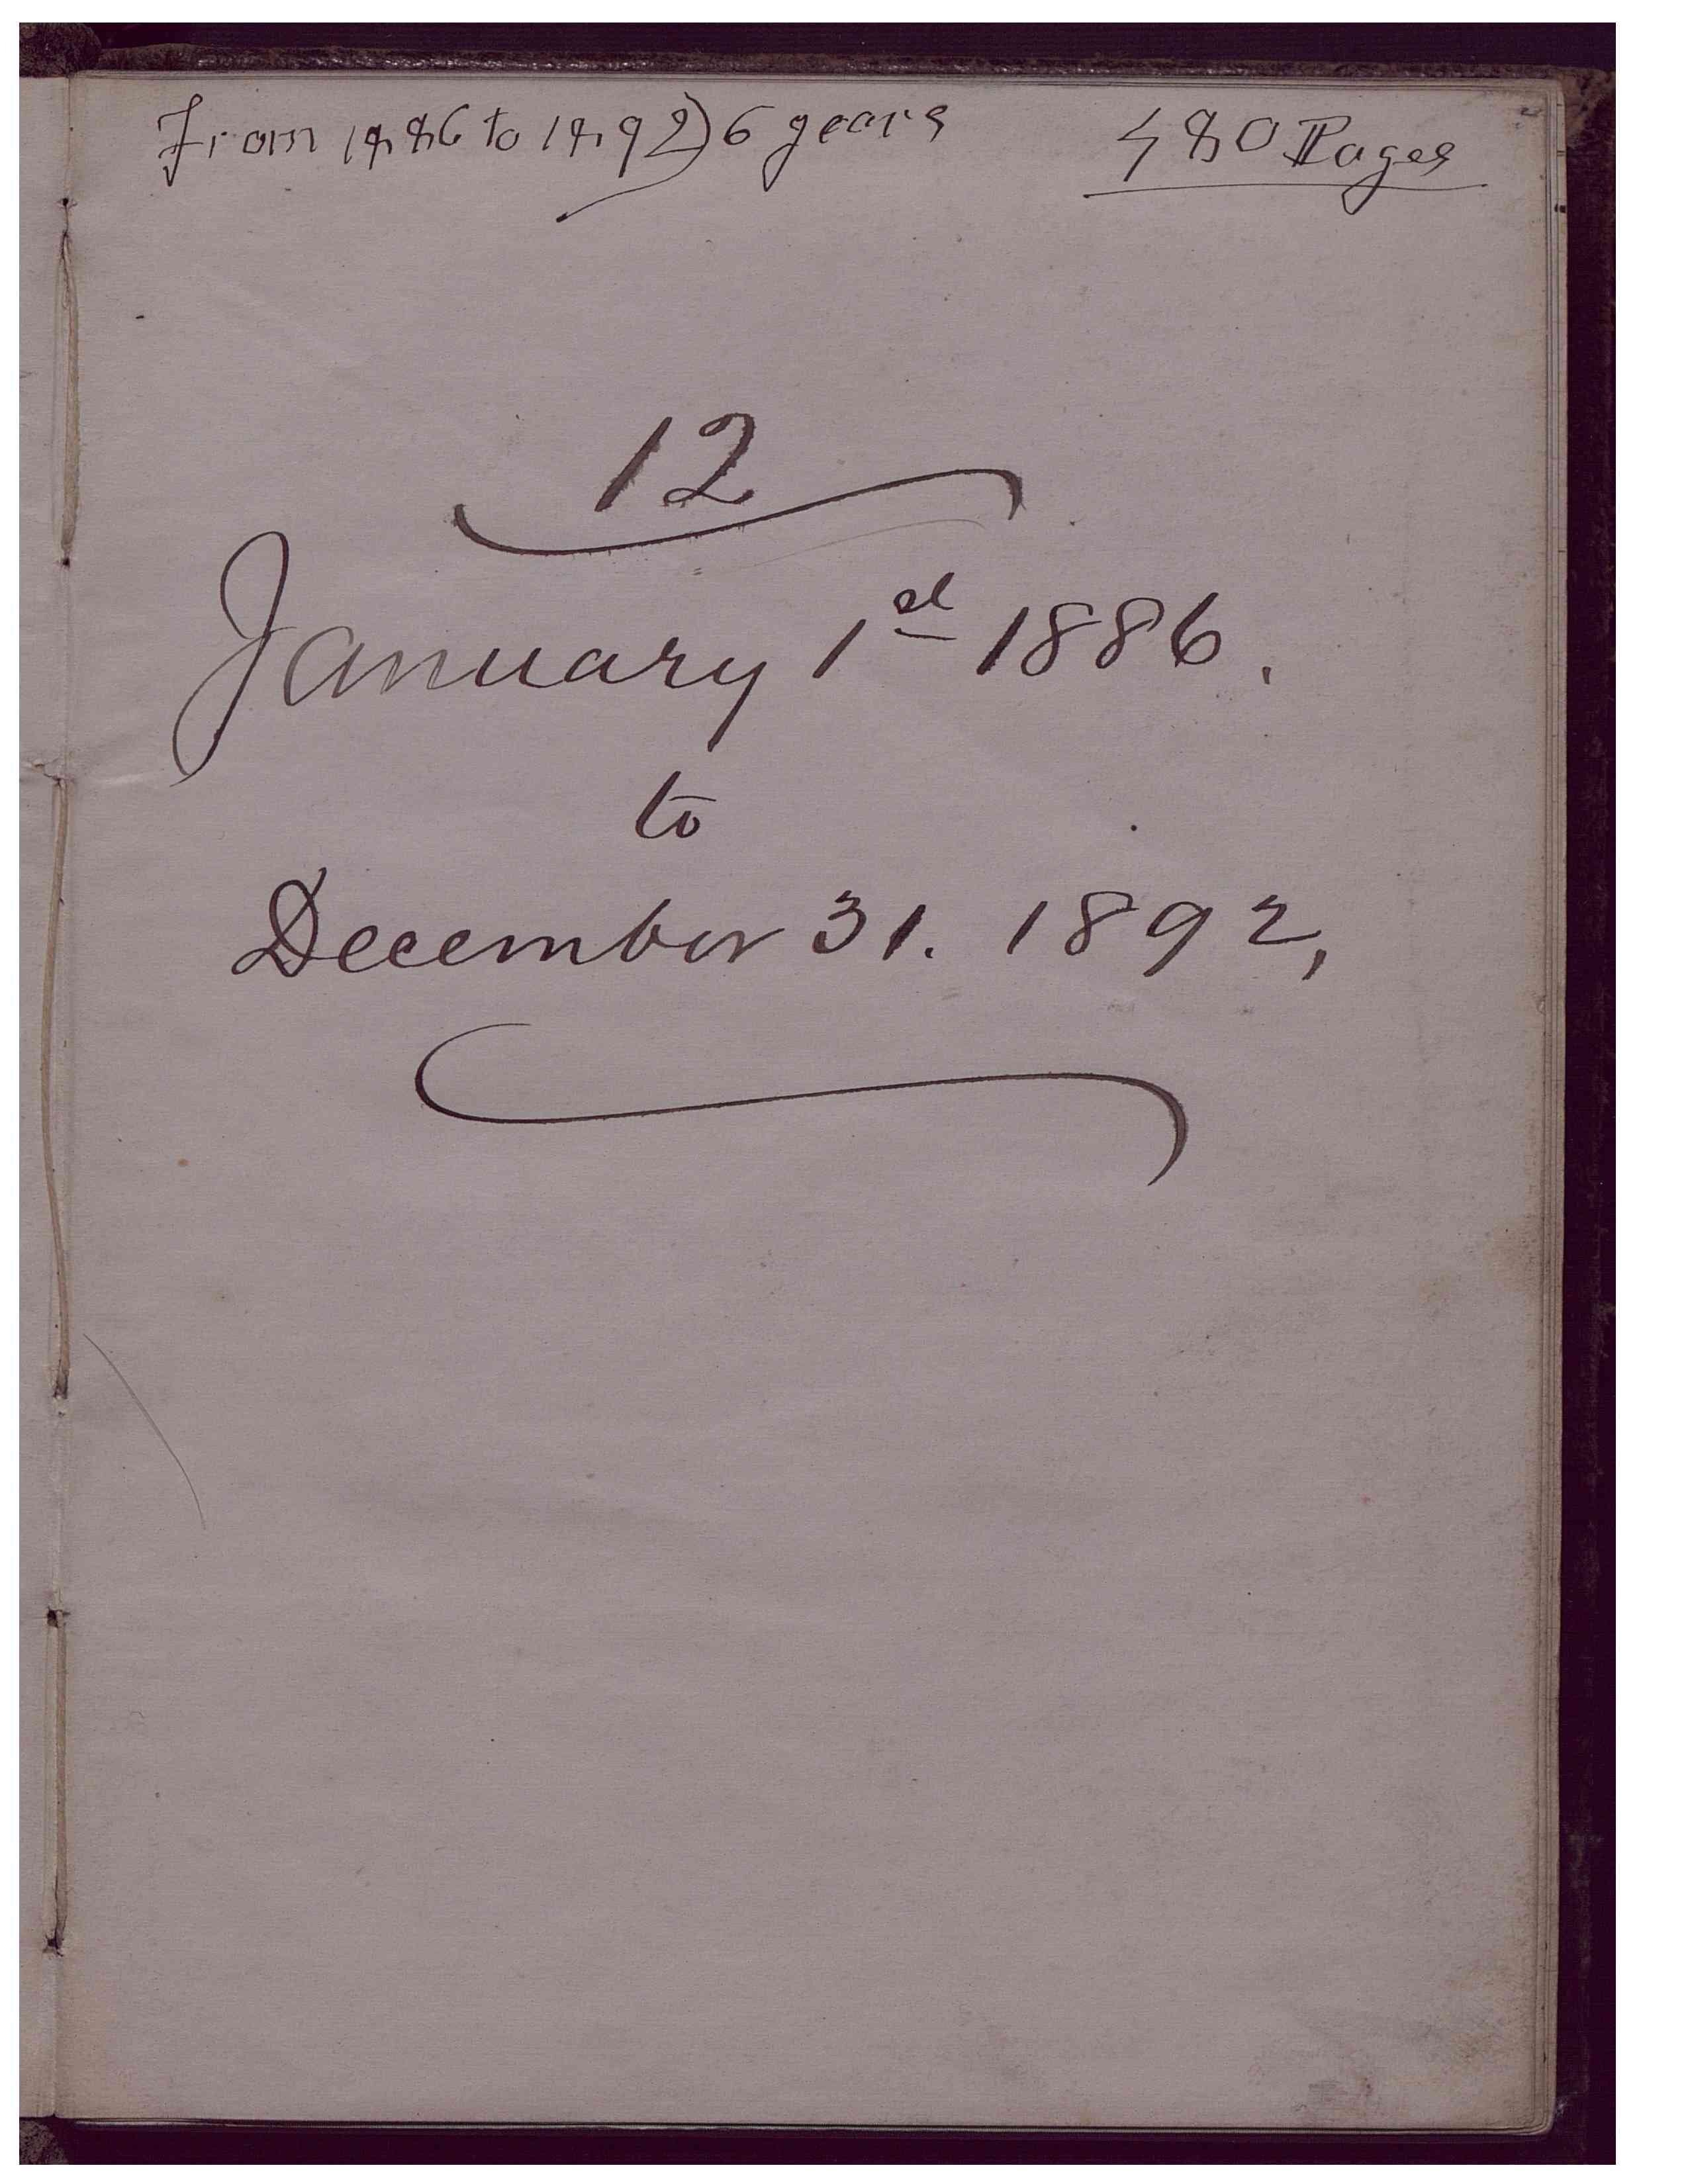 From 1886 to 1892) 6 years 480 Pages
12
January 1st 1886.
to
December 31. 1892,